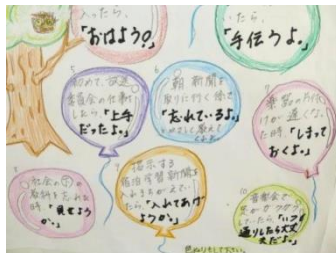 入ったら、
「おはよう。」
いたら、
「手伝うよ。」
5
初めて、放送
委員会の仕事
したら「上手
だったよ。」
6
朝、新聞を
取りに行く係で
「忘れているよ。」
7
楽器の片付
けが遅くな
た時、「しまって
おくよ。」
8
社会の
教科書を忘れた
時、「見せよう
か。」
9
掲示する
自治学習新聞を
入れまちがえてい
たら「入れてあげ
ようか。」
10
音楽会で
足がガクガク
していたら「いつも
通りしたら大丈
夫だよ。」
色ぬりをして下さい。